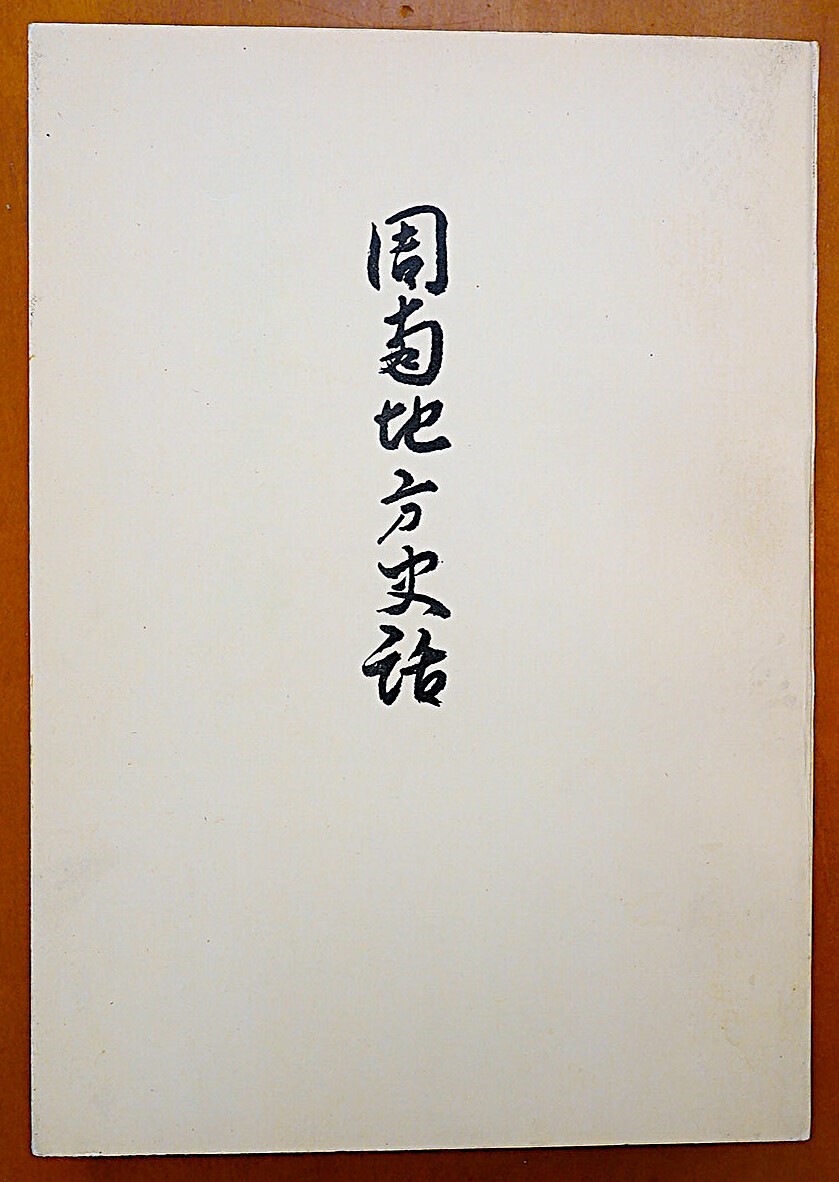 周南地方史話